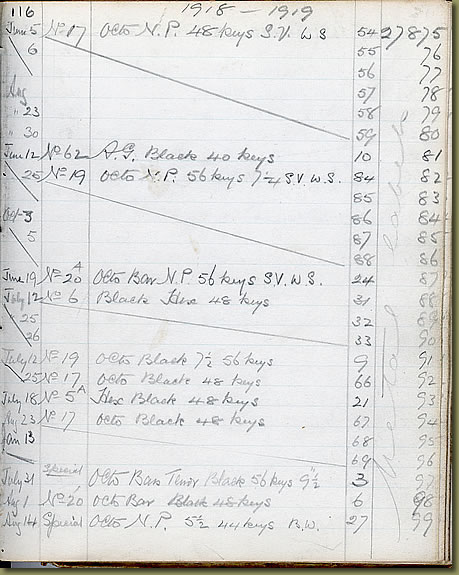 116 1918-1919
June 5 No 17 Octo N.P. 48 keys S.V. W S 54 27875
6 55 76
56 77
Aug 57 78
" 23 58 79
" 30 59 80
June 12 No 62 A.G. Black 40 keys 10 81
25 No 19 Octo N.P. 56 keys 7½ S.V. W.S. 84 82
85 83
Oct 3 86 84
5 87 85
88 86
June 19 No 20A Octo Bar N.P. 56 keys S.V. W.S. 24 87
July 12 No 6 Black Hex 48 keys 31 88
25 32 89
26 33 90
July 12 No 19 Octo Black 7½ 56 keys 9 91
25 No 17 Octo Black 48 keys 66 92
July 18 No 5A Hex Black 48 keys 21 93
Aug 23 No 17 Octo Black 48 keys 67 94
Jan 13 68 95
69 96
July 31 Special Octo Bass Tenor Black 56 keys 9½ 3 97
Aug 1 No 20 Octo Bar Black 48 keys 6 98
Aug 14 Special Octo N.P. 5½ 44 keys B.W. 27 99
labels